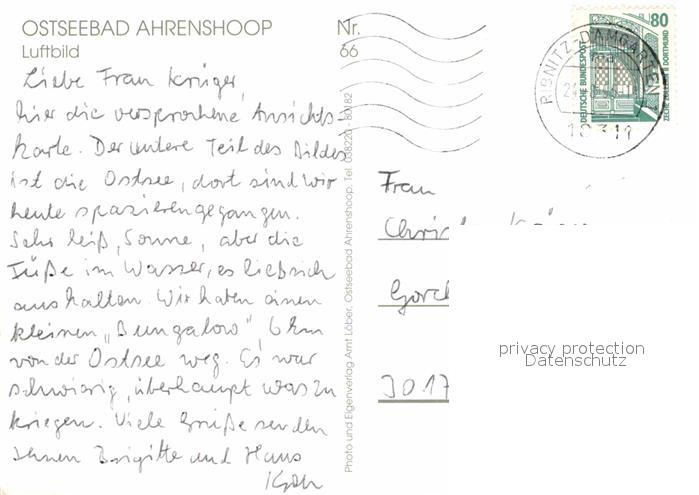 OSTSEEBAD AHRENSHOOP
Luftbild
Nr.
66
Liebe Frau Krüger,
hier die versprochene Ansichts-
karte. Der untere Teil des Bildes
ist die Ostsee, dort sind wir
heute spazierengegangen.
Sehr heiß, Sonne, aber die
Füße im Wasser, es ließ sich
aushalten. Wir haben einen
kleinen „Bungalow" 6 km
von der Ostsee weg. Es war
schwierig, überhaupt was zu
kriegen. Viele Grüße senden
Ihnen Brigitte und Hans
Photo und Eigenverlag Arnt Löber, Ostseebad Ahrenshoop, Tel. 038220 - 80182
DEUTSCHE BUNDESPOST
80
ZECHE ZOLLERN II DORTMUND
RIBNITZ-DAMGARTEN
18311
Frau
3017
privacy protection
Datenschutz